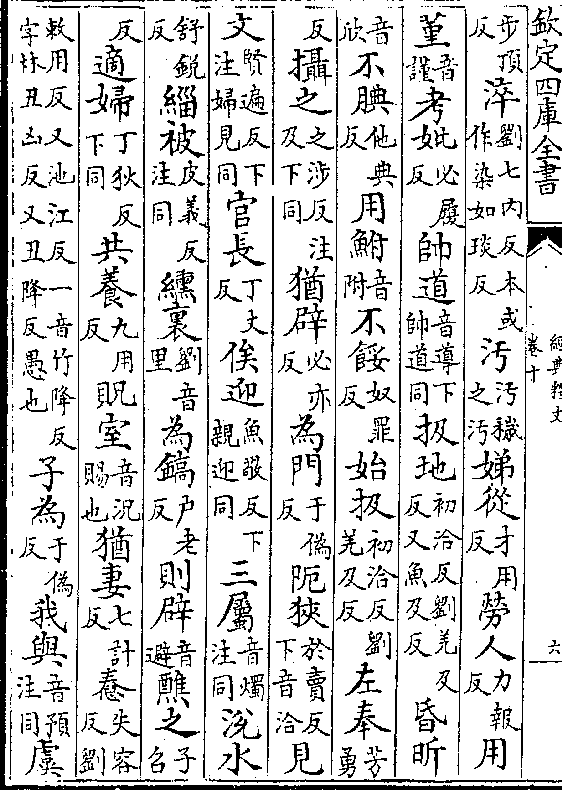 欽定四庫全書
經典釋文
卷十
六
步頂反淬劉七内反本或作染如琰反汚汚穢之汚娣從才用反勞人力報反用
菫音謹考妣必履反帥道音導下帥道同扱地初洽反劉羌及反又魚及反昏昕
音欣不腆他典反用鮒音附不餒奴罪反始扱初洽反劉羌及反左奉芳勇
反攝之之涉反注及下同猶辟必亦反為門于偽反阨狹於賣反下音洽見
文賢遍反下注婦見同官長丁丈反俟迎魚敬反下親迎同三屬音燭注同涚水
舒鋭反緇被皮義反注同纁裏劉音里為鎬户老反則辟音避醮之子召
反適婦丁狄反下同共養九用反貺室音況賜也猶妻七計反惷失容反劉
敕用反又池江反一音竹降反字林丑凶反又丑降反愚也子為于偽反我與音預注同虞